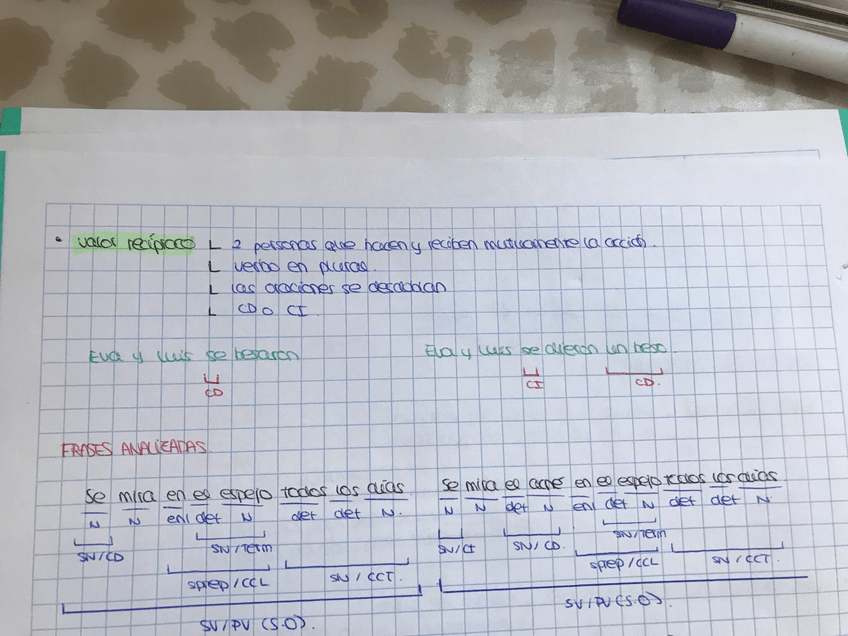 • valor recíproco 2 personas que hacen y reciben mutuamente la acción.
verbo en plural.
las oraciones se desdoblan
CD o CI.
Eva y Luis se besaron Eva y Luis se dieron un beso.
CD CI CD.
FRASES ANALIZADAS.
Se mira en el espejo todos los días Se mira el acné en el espejo todos los días
N N enl det N det det N. N N det N enl det N det det N
SN/CD SN/Term SN/CI SN/CD. SN/Term
SPrep/CCL SN/CCT. SPrep/CCL SN/CCT.
SV/PV (S.O). SV/PV (S.O).